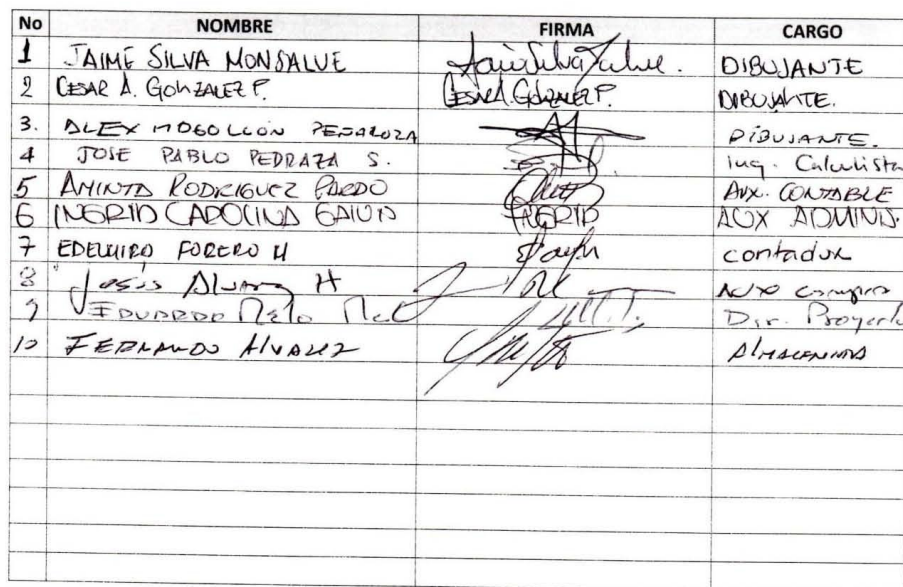 No NOMBRE FIRMA CARGO
1 JAIME SILVA MONSALVE DIBUJANTE
2 CESAR A. GONZALEZ P. CESAR A. GONZALEZ P. DIBUJANTE.
3. ALEX MOGOLLÓN PEÑALOZA DIBUJANTE.
4 JOSE PABLO PEDRAZA S. Ing. Calculista
5 AMINTA RODRIGUEZ PARDO AUX. CONTABLE
6 INGRID CAROLINA INGRID AUX ADMINIS.
7 EDELMIRO FORERO H contador
8 Jesús Alvarez H AUX compra
9 EDUARDO Melo Dir. Proyecto
10 FERNANDO ALVAREZ ALMACENISTA